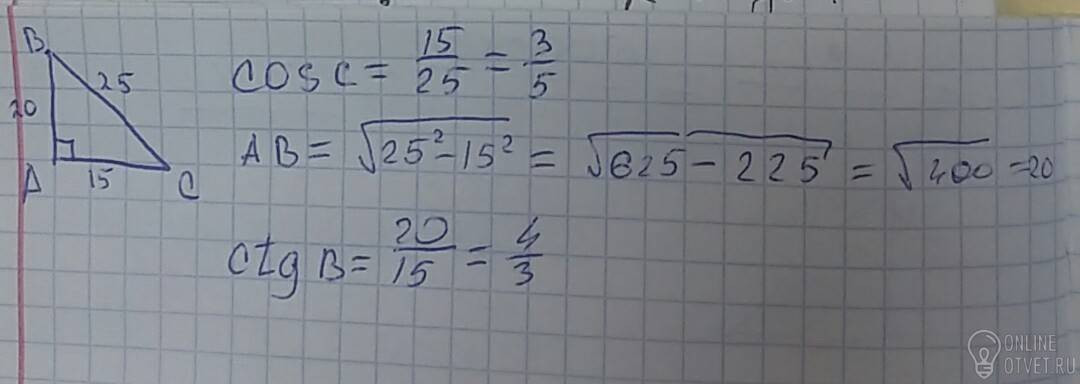 B
25
20
A
15
C
cos C = 15/25 = 3/5
AB = √25²-15² = √625 - 225 = √400 = 20
ctg B = 20/15 = 4/3
ONLINE
OTVET.RU